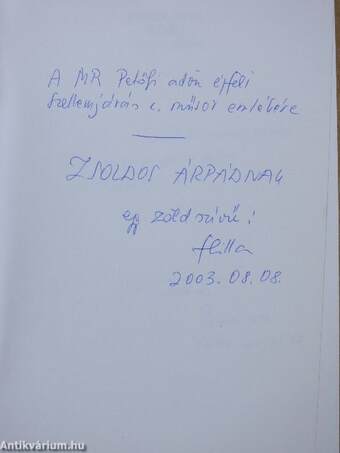 A MR Petőfi adón éjféli
Szellemjárás c. műsor emlékére
ZSOLDOS ÁRPÁDNAK
egy zöld szívű!
2003. 08. 08.
Antikvárium.hu